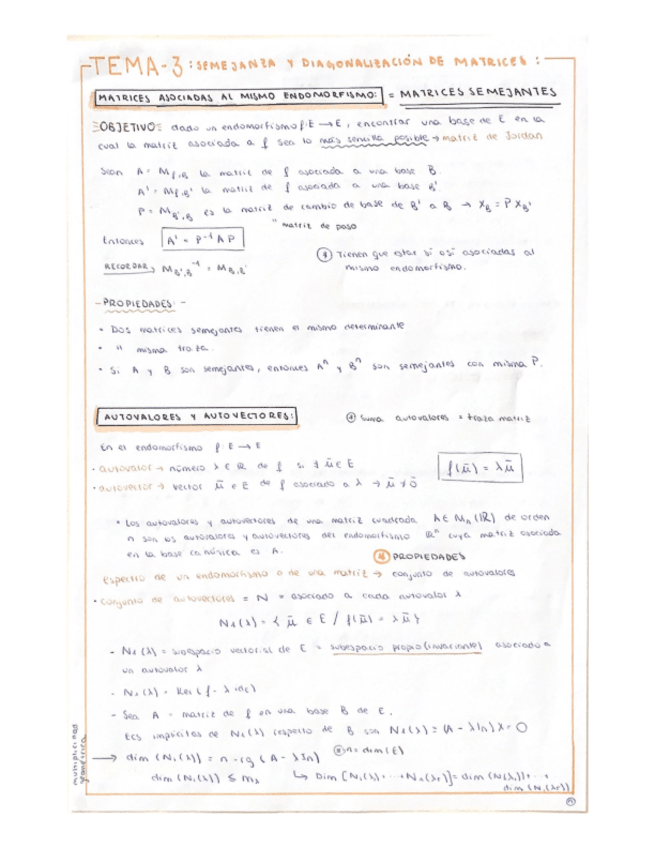 TEMA-3: SEMEJANZA Y DIAGONALIZACIÓN DE MATRICES:
MATRICES ASOCIADAS AL MISMO ENDOMORFISMO: = MATRICES SEMEJANTES
OBJETIVO: dado un endomorfismo f: E → E, encontrar una base de E en la
cual la matriz asociada a f sea lo más sencilla posible → matriz de Jordan
Sean A = M_{f,B} la matriz de f asociada a una base B.
A' = M_{f,B'} la matriz de f asociada a una base B'.
P = M_{B',B} es la matriz de cambio de base de B' a B → X_B = P X_{B'}
" matriz de paso
Entonces A' = P⁻¹ A P
* Tienen que estar sí o sí asociadas al
mismo endomorfismo.
RECORDAR M_{B',B}⁻¹ = M_{B,B'}
- PROPIEDADES: -
• Dos matrices semejantes tienen el mismo determinante
• " misma traza.
• Si A y B son semejantes, entonces Aⁿ y Bⁿ son semejantes con misma P.
AUTOVALORES Y AUTOVECTORES:
* Suma autovalores = traza matriz
En el endomorfismo f: E → E
• autovalor → número λ ∈ ℝ de f si ∃ ū ∈ E
• autovector → vector ū ∈ E de f asociado a λ → ū ≠ 0̄
f(ū) = λū
• Los autovalores y autovectores de una matriz cuadrada A ∈ Mn(ℝ) de orden
n son los autovalores y autovectores del endomorfismo ℝⁿ cuya matriz asociada
en la base canónica es A.
PROPIEDADES
espectro de un endomorfismo o de una matriz → conjunto de autovalores
• conjunto de autovectores = N = asociado a cada autovalor λ
N₁(λ) = { ū ∈ E / f(ū) = λū }
- N₁(λ) = subespacio vectorial de E = subespacio propio (invariante) asociado a
un autovalor λ
- N₁(λ) = Ker (f - λ id_E)
- Sea A = matriz de f en una base B de E.
Ecs implícitas de N₁(λ) respecto de B son N₁(λ) ≡ (A - λIn) X = 0
multiplicidad
geométrica
→ dim (N₁(λ)) = n - rg (A - λIn) * n = dim(E)
dim (N₁(λ)) ≤ m_λ ↳ Dim [N₁(λ) + ··· + N₁(λr)] = dim (N(λ₁)) + ··· +
dim (N₁(λr))